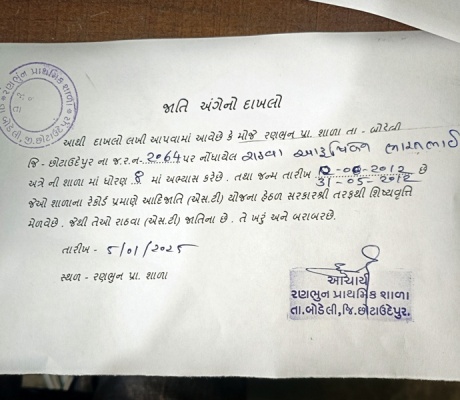 રણભુન પ્રાથમિક શાળા
તા. બોડેલી, જી. છોટાઉદેપુર
જાતિ અંગેનો દાખલો
આથી દાખલો લખી આપવામાં આવેછે કે મોજે રણભુન પ્રા. શાળા તા - બોડેલી
જિ - છોટાઉદેપુર ના જ.ર.ન-2064 પર નોંધાયેલ રાઠવા
અત્રે ની શાળા માં ધોરણ 8 માં અભ્યાસ કરેછે . તથા જન્મ તારીખ છે
31-05-2012
જેઓ શાળાના રેકોર્ડ પ્રમાણે આદિજાતિ (એસ.ટી) યોજના હેઠળ સરકારશ્રી તરફથી શિષ્યવૃતિ
મેળવેછે . જેથી તેઓ રાઠવા (એસ.ટી) જાતિના છે . તે ખરું અને બરાબરછે.
તારીખ - 5/01/2025
સ્થળ - રણભુન પ્રા. શાળા
આચાર્ય
રણભુન પ્રાથમિક શાળા
તા.બોડેલી,જિ.છોટાઉદેપુર.